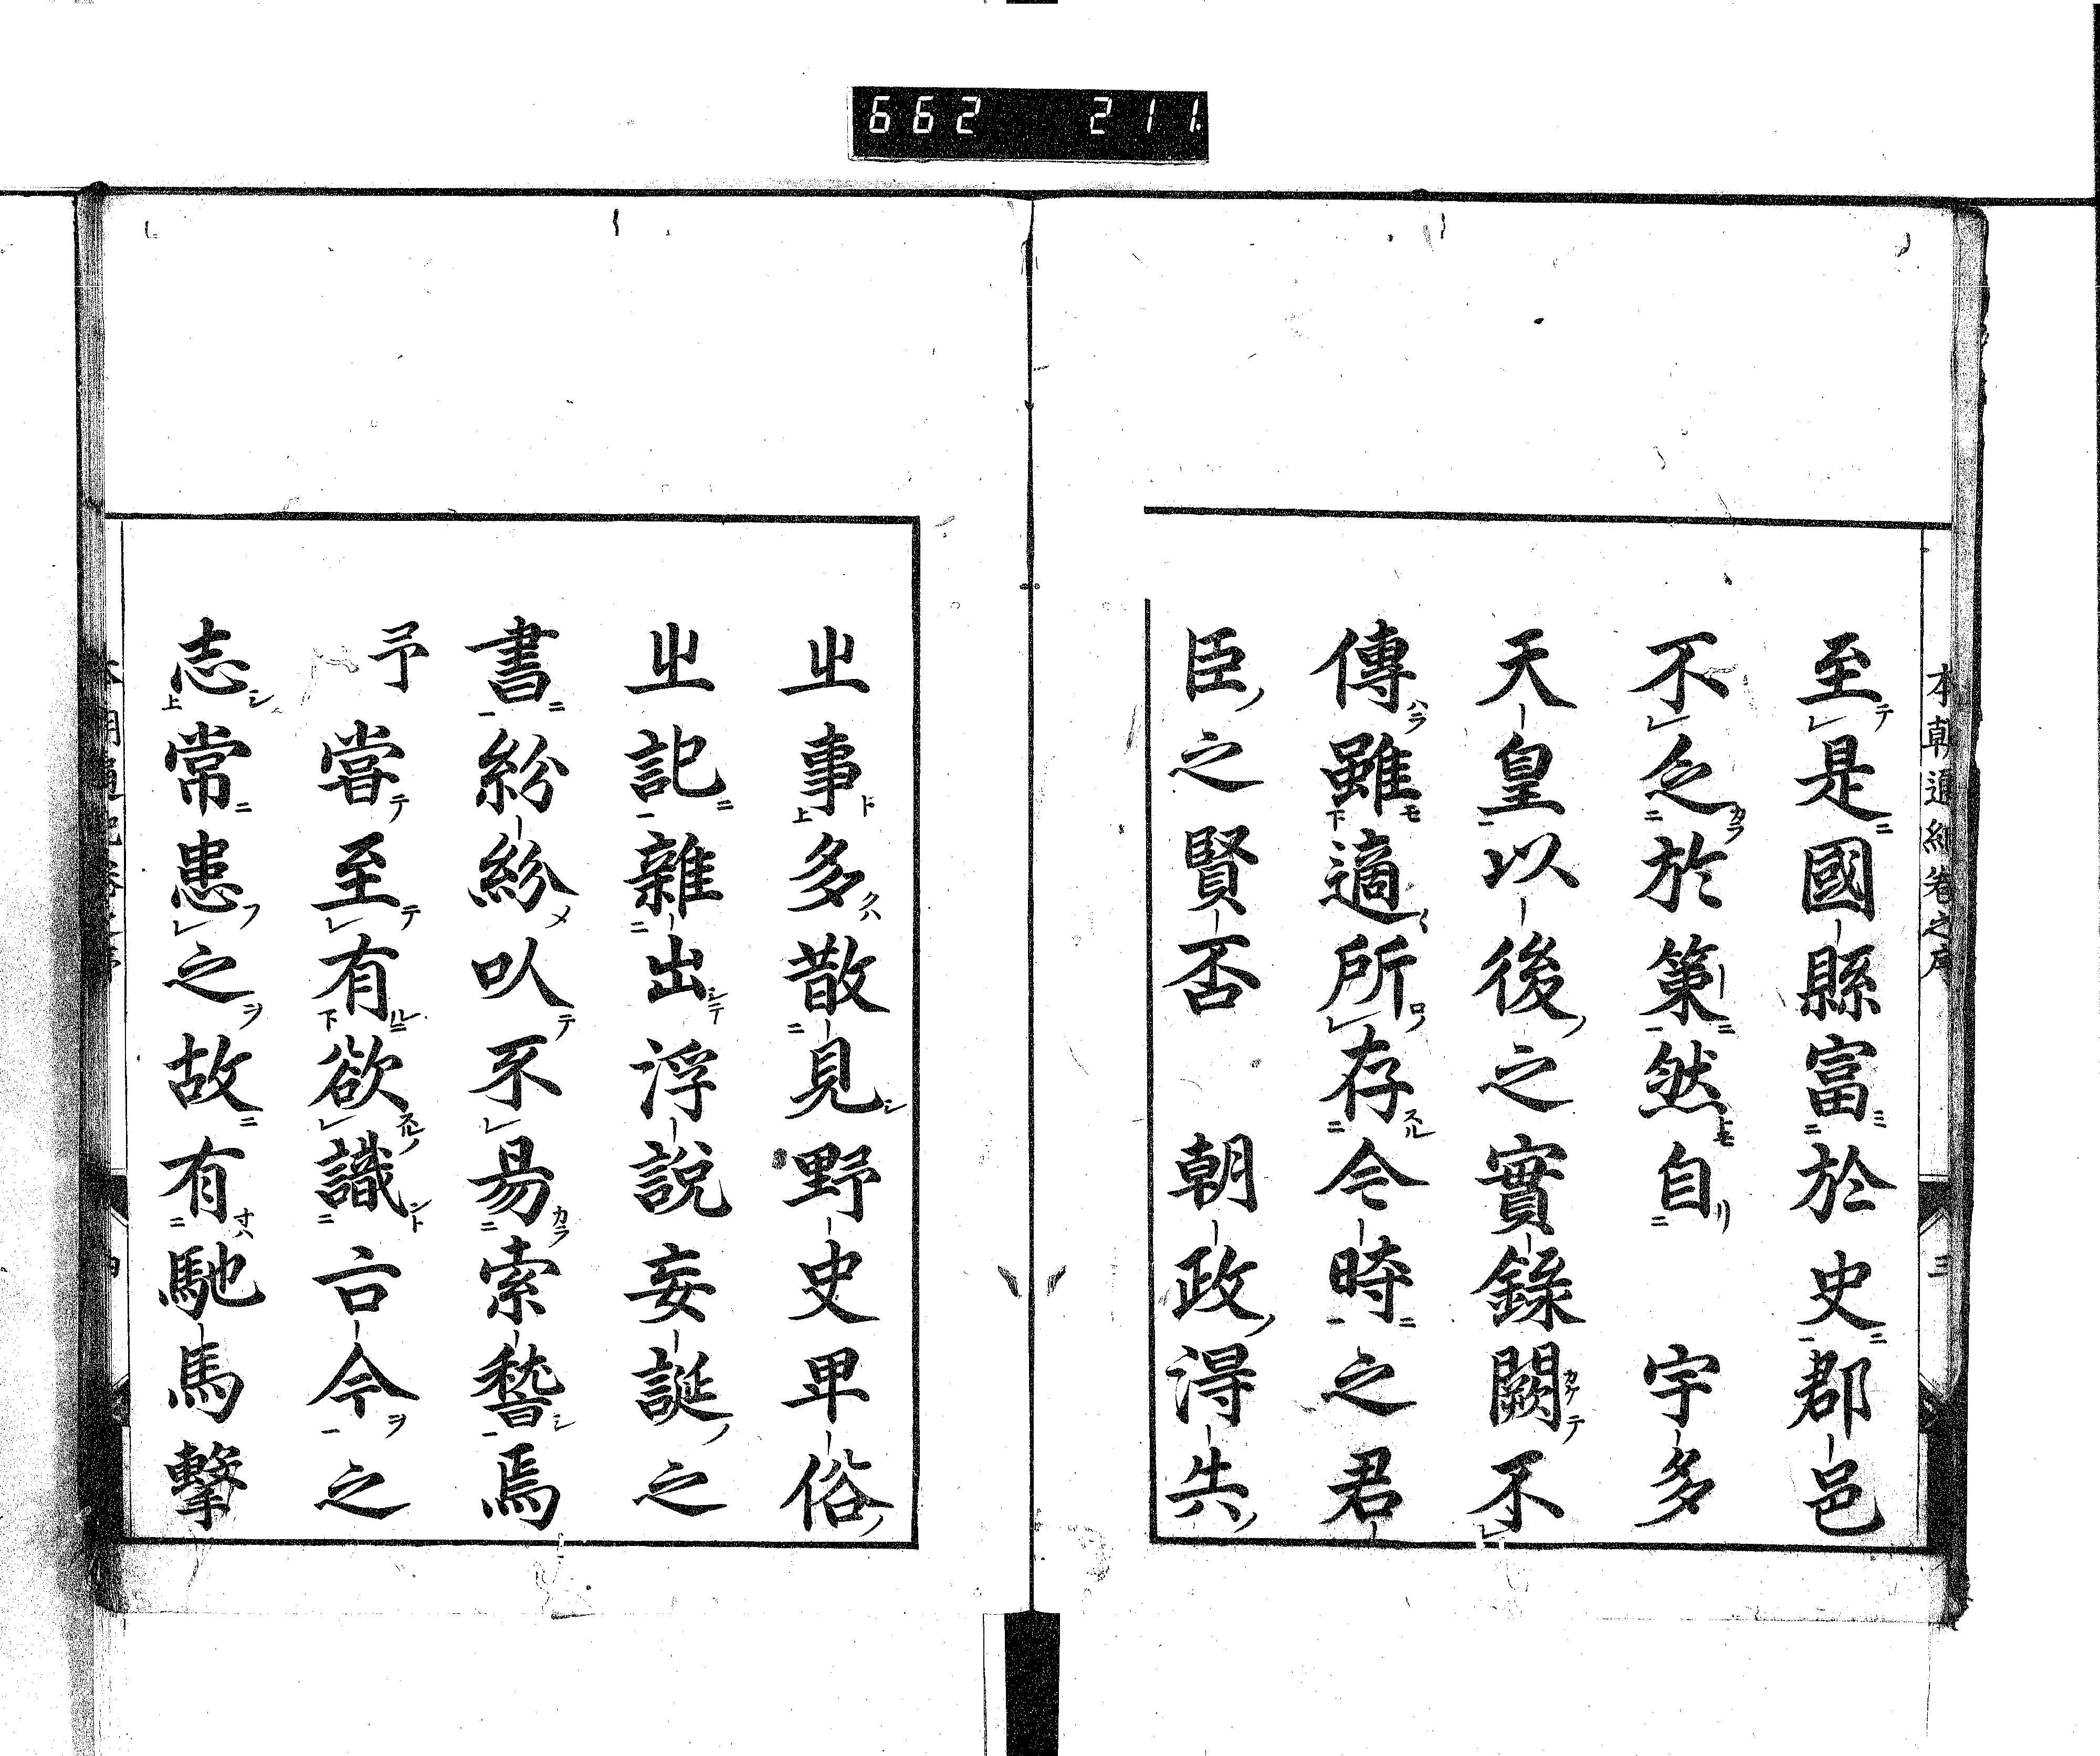 662 211
本朝通紀卷之序
三
至是國縣富於史郡邑
不乏於策然自 宇多
天皇以後之實錄闕不
傳雖適所存今時之君
臣之賢否 朝政得失
㞢事多散見野史卑俗
㞢記雜出浮說妄誕之
書紛紛以不易索稽焉
予嘗至有欲識古今之
志常患之故有馳馬擊